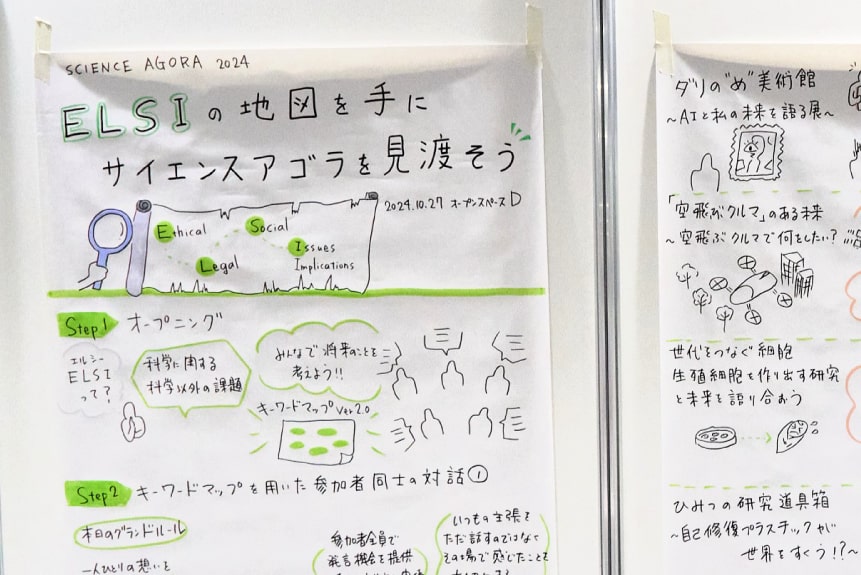 SCIENCE AGORA 2024
ELSIの地図を手に
サイエンスアゴラを見渡そう
2024.10.27 オープンスペースD
Ethical
Social
Legal
Issues
Implications
Step1 オープニング
エルシー
ELSI
って?
科学に関する
科学以外の課題
みんなで将来のことを
考えよう!!
キーワードマップ Ver 2.0
Step2 キーワードマップを用いた参加者同士の対話①
本日のグランドルール
一人ひとりの想いと
参加者全員で
発言機会を提供
いつもの主張を
ただ話すのではなく
その場で感じたことを
ダリの"め"美術館
~AIと私の未来を語る展~
「空飛ぶクルマ」のある未来
~空飛ぶクルマで何をしたい?
世代をつなぐ細胞
生殖細胞を作り出す研究
と未来を語り合おう
ひみつの研究道具箱
~自己修復プラスチックが
世界をすくう!?~